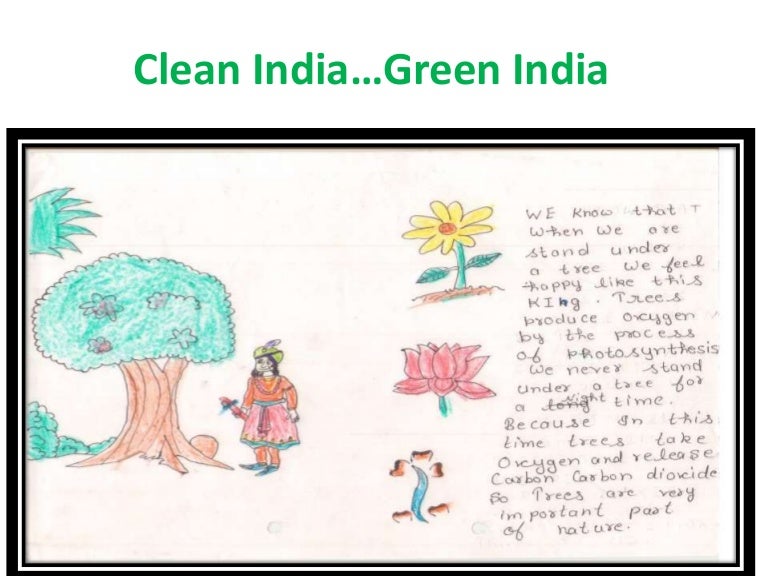 Clean India...Green India
WE Know that
When We are
stand under
a tree We feel
happy like this
KIng. Trees
produce oxygen
by the process
of photosynthesis
We never stand
under a tree for
a night time.
Because In this
time trees take
Oxygen and release
Carbon Carbon dioxide
So Trees are very
important part
of nature.